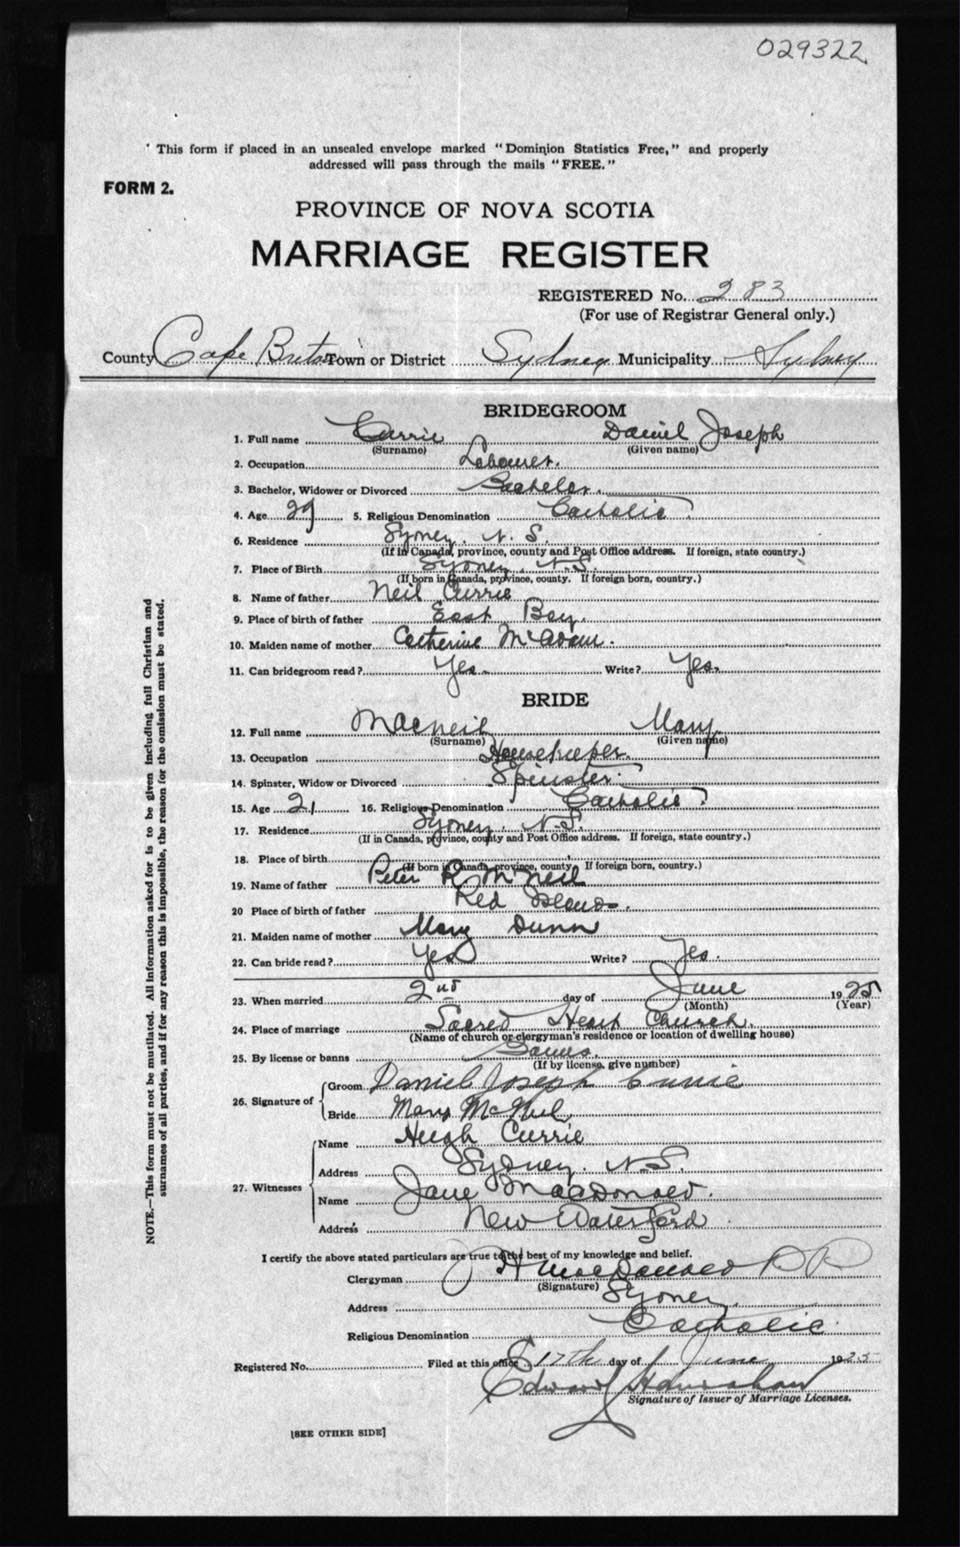 029322
This form if placed in an unsealed envelope marked "Dominion Statistics Free," and properly
addressed will pass through the mails "FREE."
FORM 2.
PROVINCE OF NOVA SCOTIA
MARRIAGE REGISTER
REGISTERED No. 283
(For use of Registrar General only.)
County Cape Breton Town or District Sydney Municipality Sydney
BRIDEGROOM
1. Full name Currie Daniel Joseph
(Surname) (Given name)
2. Occupation Labourer.
3. Bachelor, Widower or Divorced Bachelor.
4. Age 29 5. Religious Denomination Catholic
6. Residence Sydney. N. S.
(If in Canada, province, county and Post Office address. If foreign, state country.)
7. Place of Birth Sydney. N.S.
(If born in Canada, province, county. If foreign born, country.)
8. Name of father Neil Currie
9. Place of birth of father East Bay.
10. Maiden name of mother Catherine McAdam.
11. Can bridegroom read? Yes. Write? Yes.
BRIDE
12. Full name MacNeil Mary
(Surname) (Given name)
13. Occupation Housekeeper.
14. Spinster, Widow or Divorced Spinster.
15. Age 21 16. Religious Denomination Catholic.
17. Residence Sydney. N.S.
(If in Canada, province, county and Post Office address. If foreign, state country.)
18. Place of birth
(If born in Canada, province, county. If foreign born, country.)
19. Name of father Peter R McNeil
20 Place of birth of father Red Islands.
21. Maiden name of mother Mary Dunn
22. Can bride read? Yes Write? Yes.
23. When married 2nd day of June 1925
(Month) (Year)
24. Place of marriage Sacred Heart Church.
(Name of church or clergyman's residence or location of dwelling house)
25. By license or banns Banns.
(If by license, give number)
26. Signature of Groom Daniel Joseph Currie
Bride Mary McNeil
27. Witnesses Name Hugh Currie
Address Sydney. N.S.
Name Jane MacDonald.
Address New Waterford.
I certify the above stated particulars are true to the best of my knowledge and belief.
Clergyman H MacDonald PP
(Signature)
Address Sydney.
Religious Denomination Catholic
Registered No. Filed at this office 17th day of June 1925
Edward
Signature of Issuer of Marriage Licenses.
[SEE OTHER SIDE]
NOTE.—This form must not be mutilated. All information asked for is to be given including full Christian and
surnames of all parties, and if for any reason this is impossible, the reason for the omission must be stated.